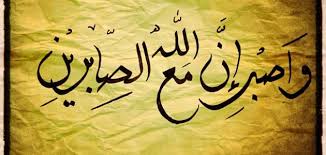 وَاصبِر إِنَّ اللّٰهَ مَعَ الصَّابِرِين